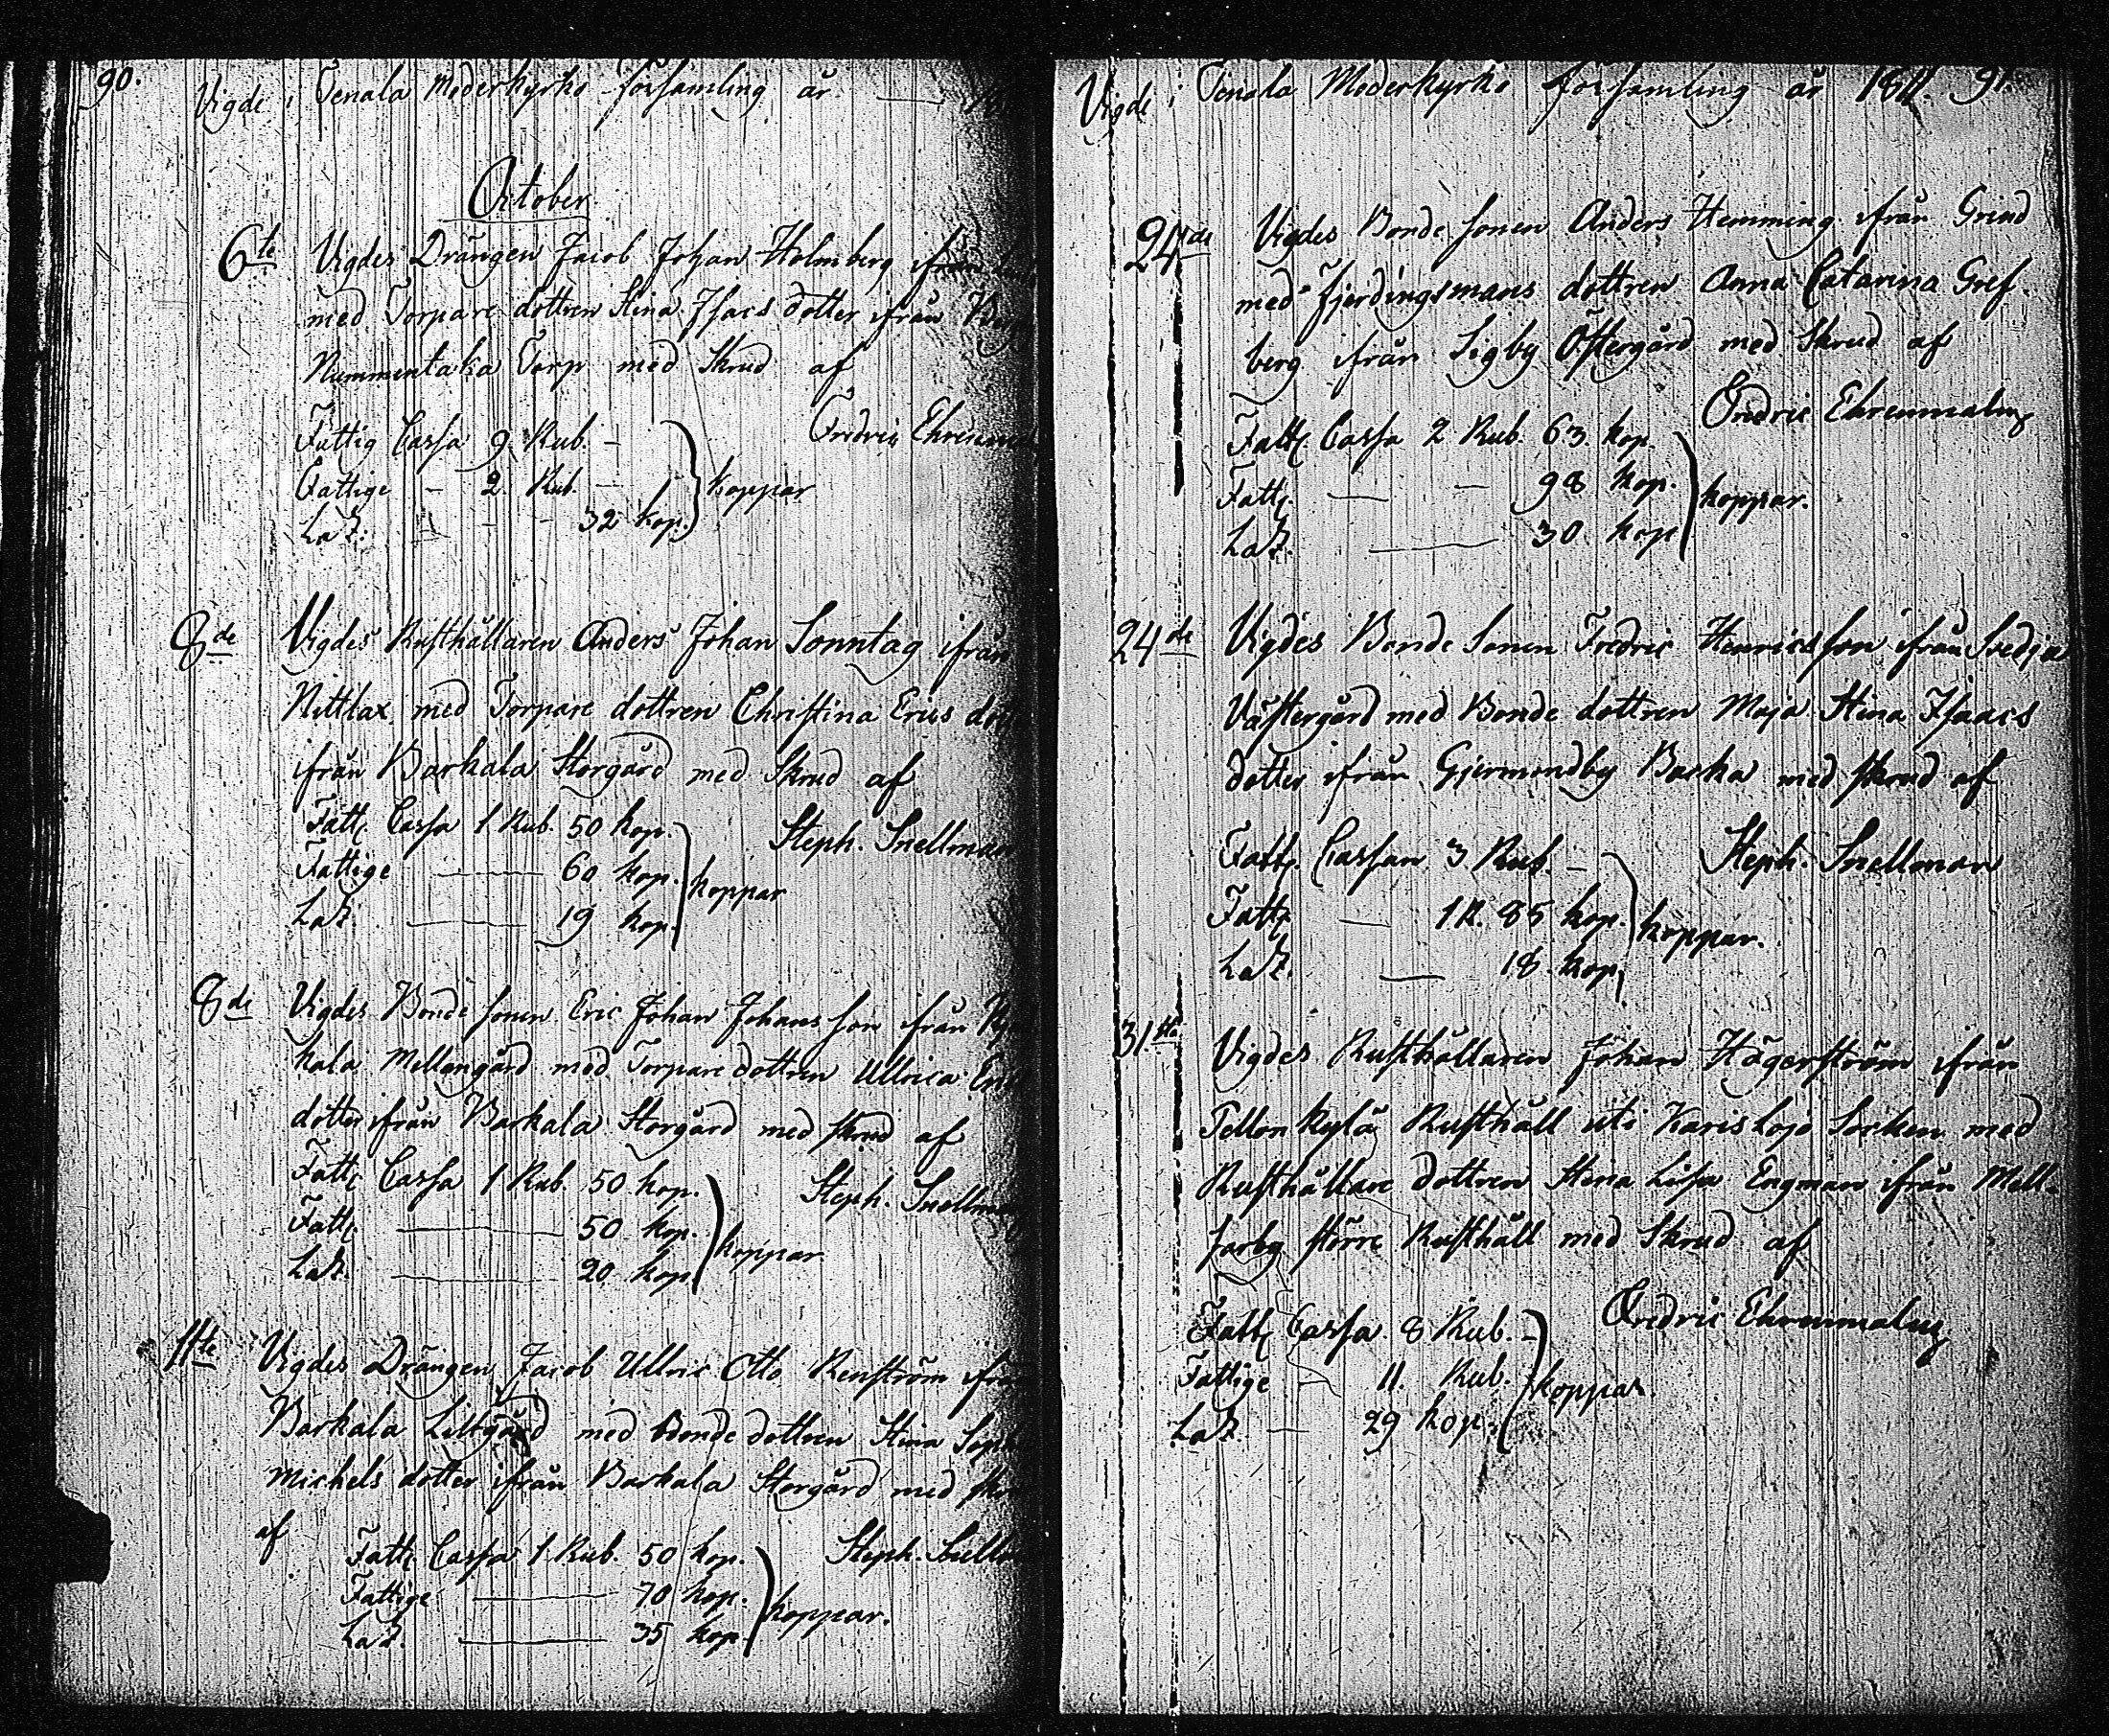 90.
Vigde i Tenala Moderkyrko församling år — 18
October
6te Vigdes Drängen Jacob Johan Holmberg ifrån
med Torpare dottren Stina Isacs dotter ifrån
Nummentaka Torp med Skrud af
Fredric Ehrenm
Fattig Cassa 9 Rub. —
Fattige — 2 Rub. —
Laz: — — — 32 kop. } koppar
8de Vigdes Rusthållaren Anders Johan Sonntag ifrån
Nittlax med Torpare dottren Christina Erics dott
ifrån Barkala Storgård med Skrud af
Steph. Snellman
Fatt. Cassa 1 Rub. 50 kop.
Fattige — 60 kop.
Laz. — 19 kop. } koppar
8de Vigdes Bonde sonen Eric Johan Johansson ifrån
kala Mellangård med Torpare dottren Ullrica Erics
dotter ifrån Barkala Storgård med skrud af
Steph. Snellman
Fatt. Cassa 1 Rub. 50 kop.
Fatt. — 50 kop.
Laz. — 20 kop. } koppar
11te Vigdes Drängen Jacob Ullric Otto Renström ifrån
Barkala Lillgård med Bonde dottren Stina Soph
Michels dotter ifrån Barkala Storgård med skr
af
Steph. Snellm
Fatt. Cassa 1 Rub. 50 kop.
Fattige — 70 kop.
Laz. — 35 kop. } koppar.
Vigde i Tenala Moderkyrko församling år 1811. 91.
24de Vigdes Bonde sonen Anders Hemming ifrån Grind
med Fjerdingsmans dottren Anna Catarina Gref-
berg ifrån Sigby Östergård med Skrud af
Fredric Ehrenmalm
Fatt. Cassa 2 Rub. 63 kop.
Fatt. — — 98 kop.
Laz. — 30 kop } koppar.
24de Vigdes Bonde Sonen Fredric Henricsson ifrån Svedja
Västergård med Bonde dottren Maja Stina Isaacs
dotter ifrån Gjermundby Backa med skrud af
Steph. Snellman
Fatt. Cassan 3 Rub. —
Fatt. — 1 R. 85 kop.
Laz. — 18 kop. } koppar.
31.sta Vigdes Rusthållaren Johan Högerström ifrån
Pellonkylä Rusthåll uti Karislojo Socken med
Rusthållare dottren Stina Lisa Engman ifrån Mell-
jarby större Rusthåll med Skrud af
Fredric Ehrenmalm
Fatt. Cassa 8 Rub. —
Fattige — 11. Rub.
Laz. — 29 kop. } koppar.